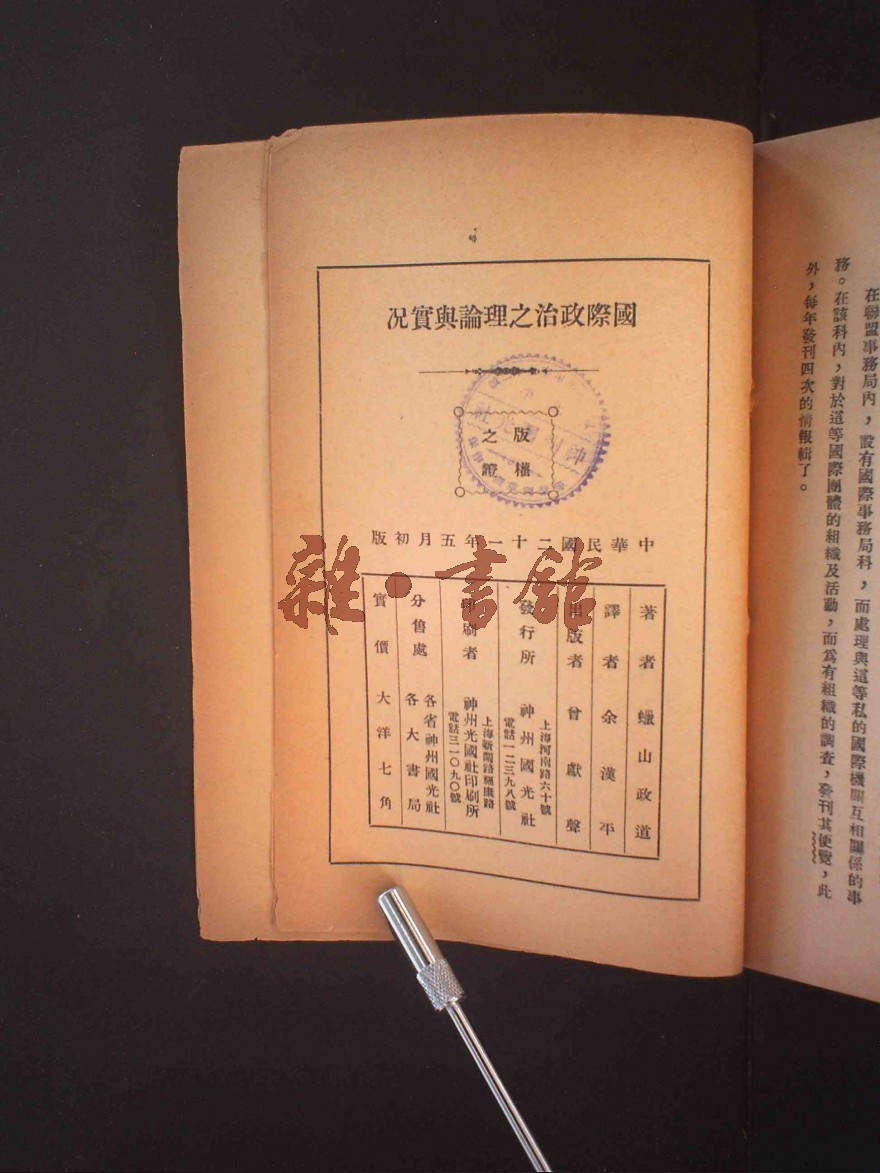 在聯盟事務局內，設有國際事務局科，而處理與這等私的國際機關互相關係的事
務。在該科內，對於這等國際團體的組織及活動，而爲有組織的調查，發刊其便覽，此
外，每年發刊四次的情報輯了。
國際政治之理論與實况
版權
之證
中華民國二十一年五月初版
著者 蠟山政道
譯者 余漢平
出版者 曾獻聲
發行所 神州國光社
上海河南路六十號
電話一二三九八號
印刷者 神州光國社印刷所
上海新閘路
電話三一〇九〇號
分售處 各省神州國光社
各大書局
實價大洋七角
雜·書館